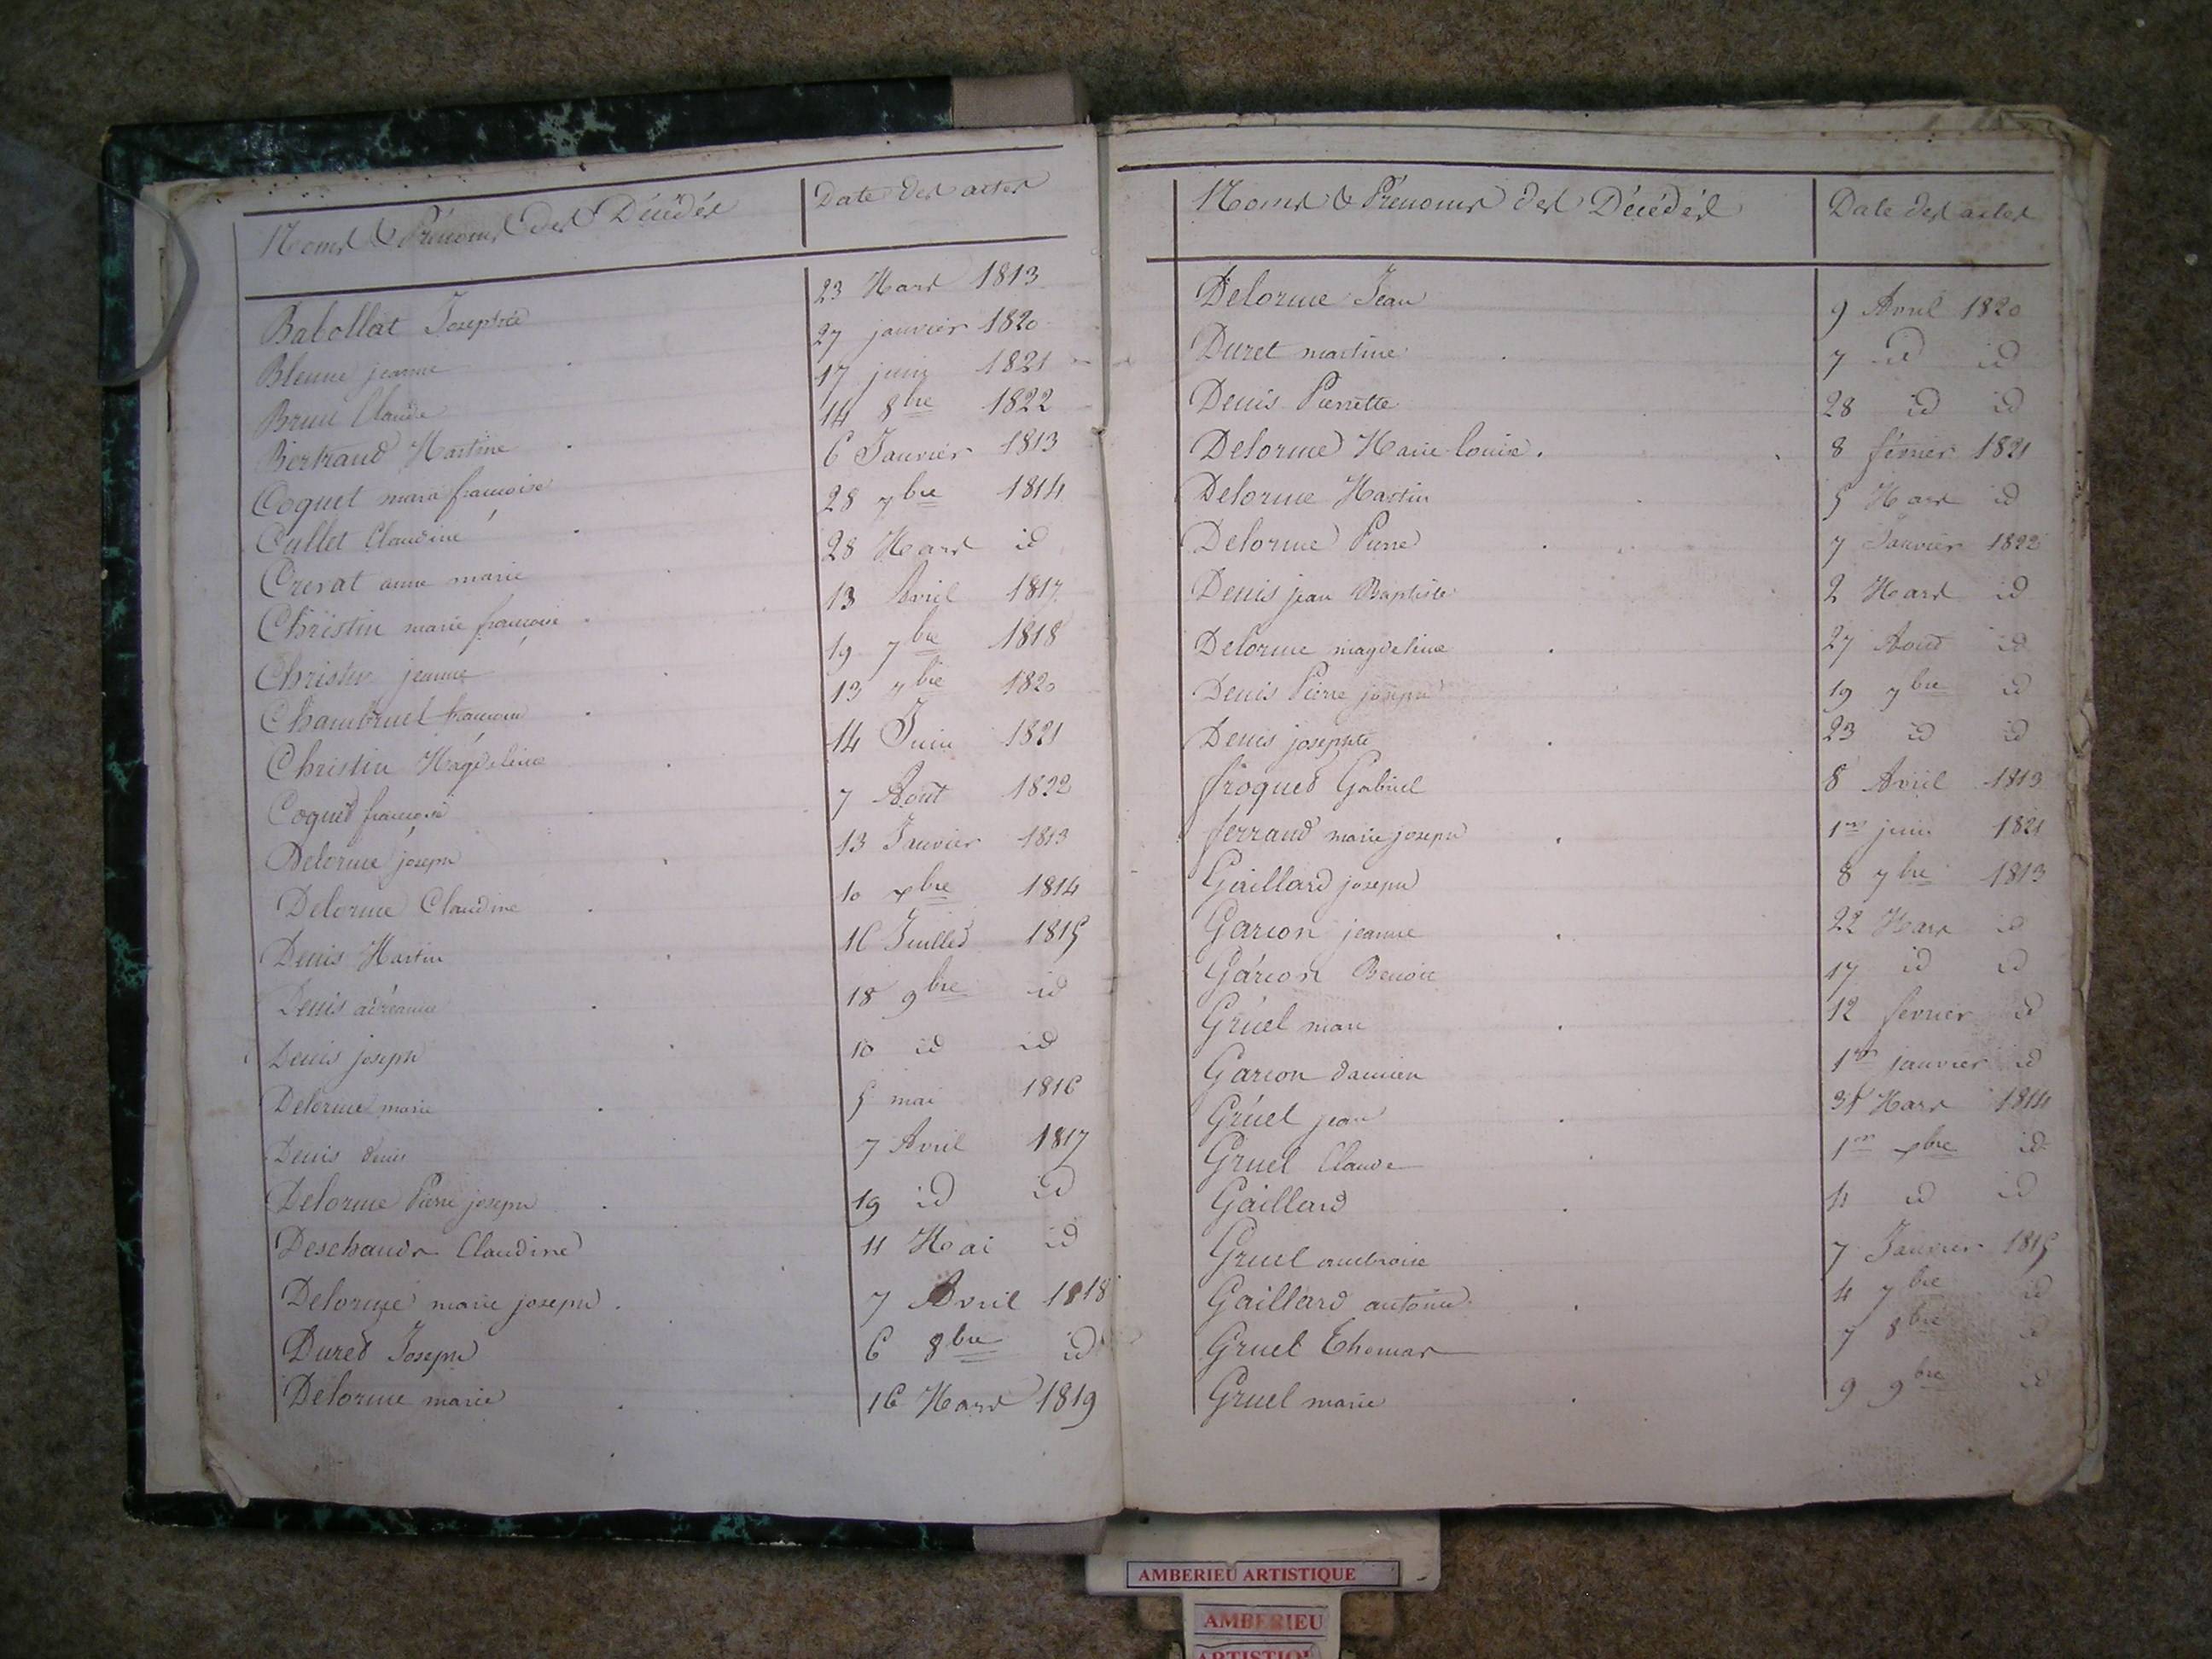 Noms & Prénoms des Décédés Date des actes
Babollat Josephte 23 Mars 1813
Bleune jeanne 27 janvier 1820
Brun Claude 17 juin 1821
Bertrand Martine 14 8bre 1822
Coquet marie françoise 6 Janvier 1813
Cullet Claudine 28 7bre 1814
Crevat anne marie 28 Mars id
Christin marie françoise 13 Avril 1817
Christin jeanne 19 7bre 1818
françoise 13 7bre 1820
Christin Magdeleine 14 Juin 1821
Coquet françoise 7 Août 1822
Delorme joseph 13 Janvier 1813
Delorme Claudine 10 xbre 1814
Denis Martin 16 Juillet 1815
Denis adrianne 18 9bre id
Denis joseph 10 id id
Delorme marie 5 mai 1816
Denis denis 7 Avril 1817
Delorme Pierre joseph 19 id id
Deschamps Claudine 11 Mai id
Delorme marie joseph 7 Avril 1818
Duret Joseph 6 8bre id
Delorme marie 16 Mars 1819
Noms & Prénoms des Décédés Date des actes
Delorme Jean 9 Avril 1820
Duret martine 7 id id
Denis Pierrette 28 id id
Delorme Marie louise 8 février 1821
Delorme Martin 5 Mars id
Delorme Pierre 7 Janvier 1822
Denis jean Baptiste 2 Mars id
Delorme magdeleine 27 Aout id
Denis Pierre joseph 19 7bre id
Denis josephte 23 id id
froquet Gabriel 8 Avril 1813
ferrand marie joseph 1er juin 1821
Gaillard joseph 8 7bre 1813
Garcon jeanne 22 Mars id
Garcon Benoit 17 id id
Gruel marie 12 fevrier id
Garcon damien 1er janvier id
Gruel jean 31 Mars 1814
Gruel Claude 1er xbre id
Gaillard 11 id id
Gruel ambroise 7 Janvier 1815
Gaillard antoine 4 7bre id
Gruel Thomas 7 8bre id
Gruel marie 9 9bre id
AMBERIEU ARTISTIQUE
AMBERIEU
ARTISTIQUE